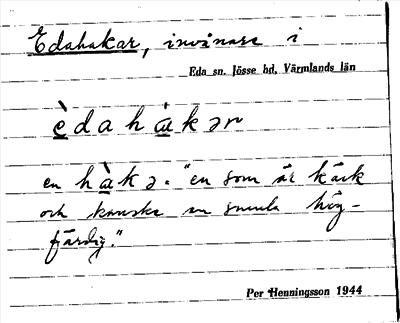 Edahakar, invånare i
Eda sn. Jösse hd, Värmlands län
èdahàkər
en hàkə. "en som är käck
och kanske en smula hög-
färdig."
Per Henningsson 1944